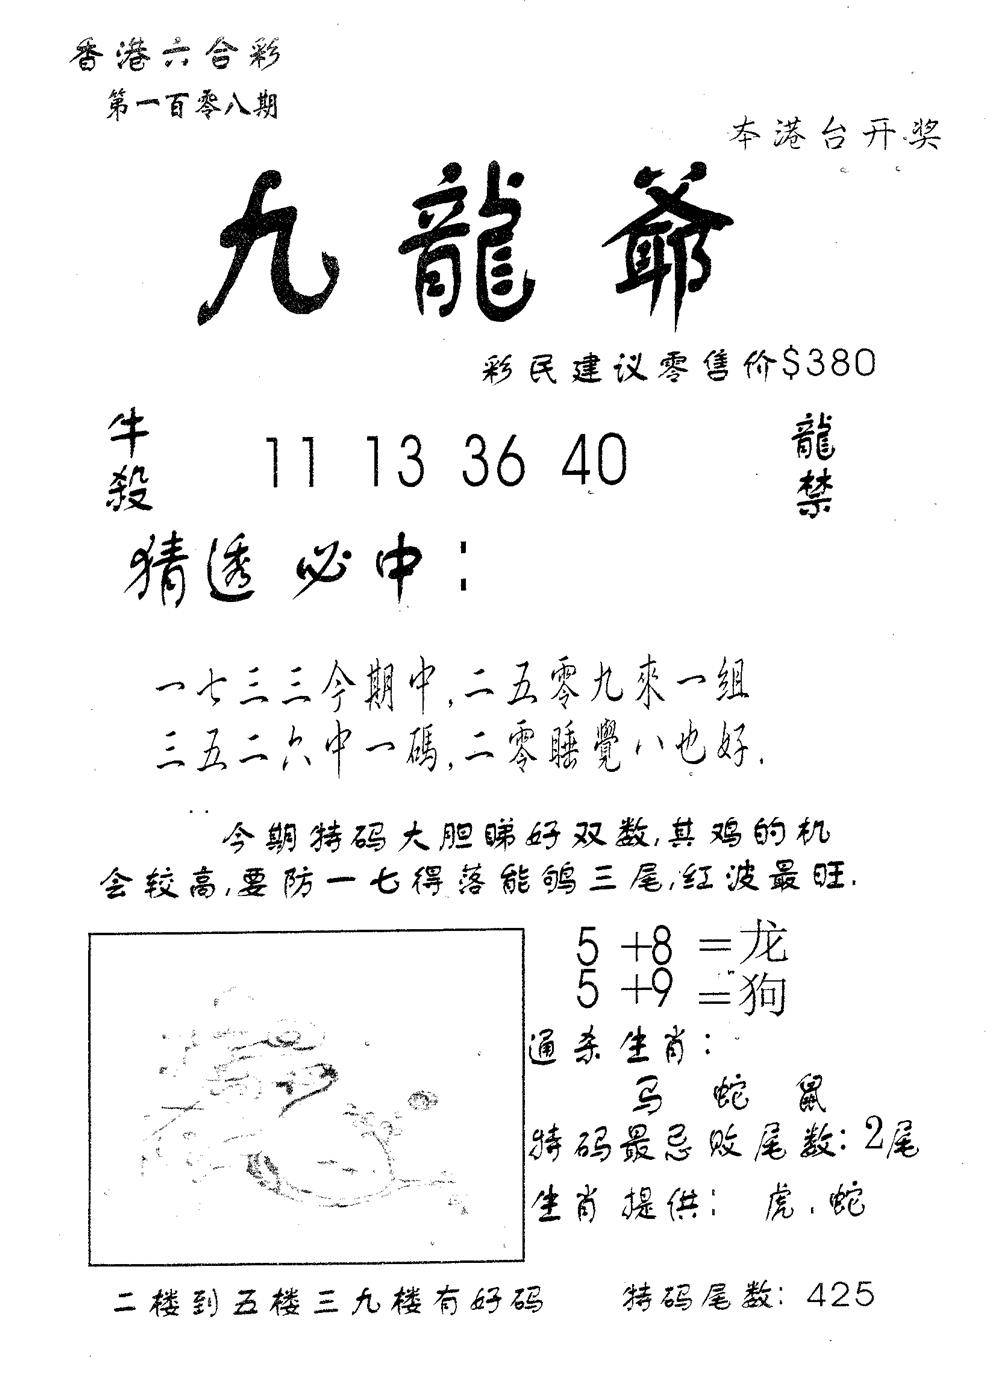 香港六合彩
第一百零八期
本港台开奖
九龍爺
彩民建议零售价$380
牛殺 11 13 36 40 龍禁
猜透必中：
一七三三今期中,二五零九來一組
三五二六中一碼,二零睡覺八也好.
今期特码大胆睇好双数,其鸡的机
会较高,要防一七得落能鸲三尾,红波最旺.
5+8=龙
5+9=狗
通杀生肖：
马 蛇 鼠
特码最忌败尾数：2尾
生肖提供：虎.蛇
二楼到五楼三九楼有好码 特码尾数：425